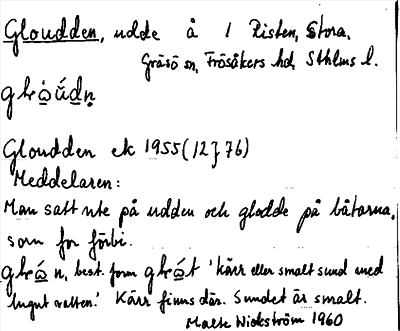 Gloudden, udde å / Risten, Stora,
Gräsö sn, Frösåkers hd, Sthlms l.
Gloudden ek 1955 (12J76)
Meddelaren:
Man satt ute på udden och glodde på båtarna,
som for förbi.
best. form 'kärr eller smalt sund med
lugnt vatten.' Kärr finns där. Sundet är smalt.
Malte Wickström 1960